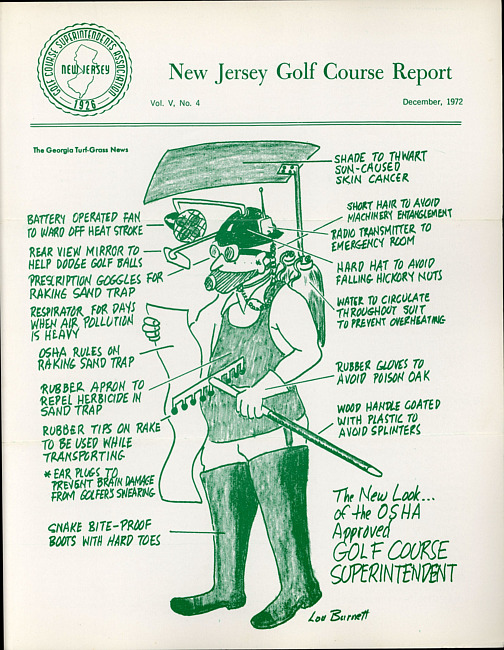 GOLF COURSE SUPERINTENDENTS ASSOCIATION
NEW JERSEY
1926
New Jersey Golf Course Report
Vol. V, No. 4
December, 1972
The Georgia Turf-Grass News
SHADE TO THWART
SUN-CAUSED
SKIN CANCER
BATTERY OPERATED FAN
TO WARD OFF HEAT STROKE
SHORT HAIR TO AVOID
MACHINERY ENTANGLEMENT
RADIO TRANSMITTER TO
EMERGENCY ROOM
REAR VIEW MIRROR TO
HELP DODGE GOLF BALLS
HARD HAT TO AVOID
FALLING HICKORY NUTS
PRESCRIPTION GOGGLES FOR
RAKING SAND TRAP
WATER TO CIRCULATE
THROUGHOUT SUIT
TO PREVENT OVERHEATING
RESPIRATOR FOR DAYS
WHEN AIR POLLUTION
IS HEAVY
OSHA RULES ON
RAKING SAND TRAP
RUBBER GLOVES TO
AVOID POISON OAK
RUBBER APRON TO
REPEL HERBICIDE IN
SAND TRAP
WOOD HANDLE COATED
WITH PLASTIC TO
AVOID SPLINTERS
RUBBER TIPS ON RAKE
TO BE USED WHILE
TRANSPORTING
* EAR PLUGS TO
PREVENT BRAIN DAMAGE
FROM GOLFER'S SWEARING
SNAKE BITE-PROOF
BOOTS WITH HARD TOES
The New Look...
of the OSHA
Approved
GOLF COURSE
SUPERINTENDENT
Lou Burnett